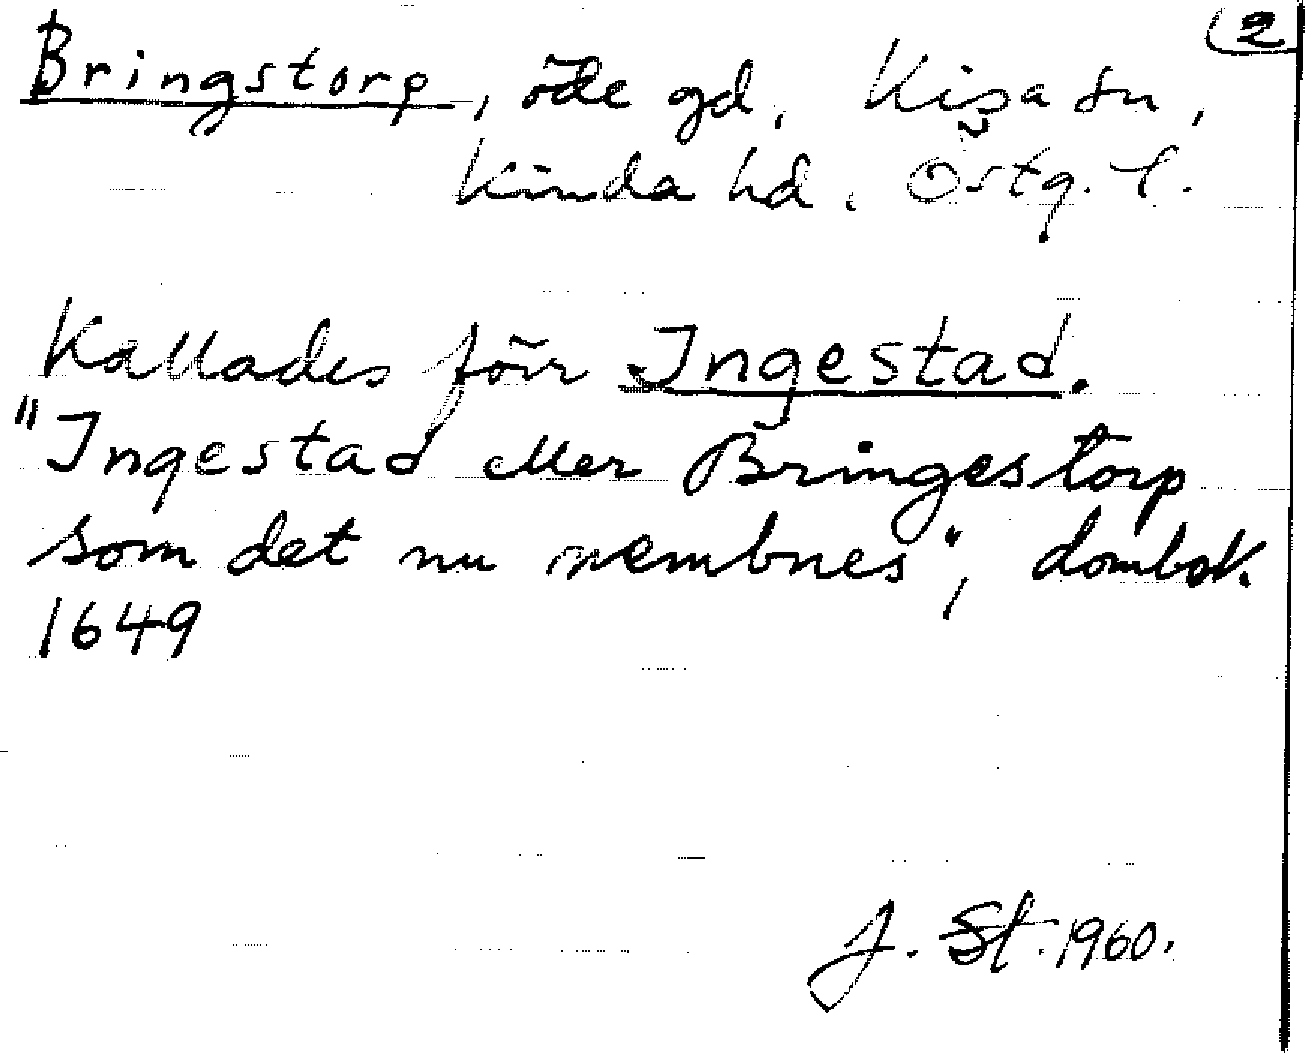 2
Bringstorp, öde gd, Kisa sn,
Kinda hd. Östg. l.
Kallades förr Ingestad.
"Ingestad eller Bringestorp
som det nu nembnes", dombok.
1649
J. St. 1960.